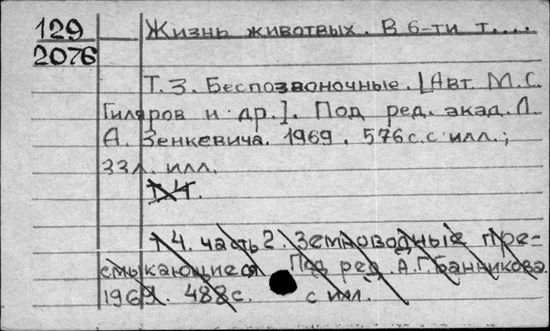 129
2076
Жизнь животвых. В 6-ти т....
Т.3. Беспозвоночные. [Авт. М.С.
Гиляров и др.]. Под ред. акад. Л.
А. Зенкевича. 1969. 576с. с илл.;
33л. илл.
Т.4.
Т.4. часть 2. Земноводные пре-
смыкающиеся Под ред. А.Г. Банникова.
1969. 488с. с илл.